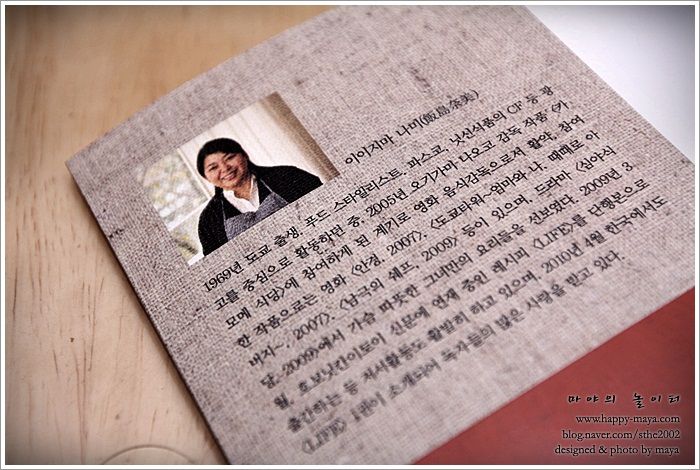 이이지마 나미(飯島奈美)
1969년 도쿄 출생. 푸드 스타일리스트. 파스코, 닛신식품의 CF 등 광
고를 중심으로 활동하던 중, 2005년 오기가미 나오코 감독 작품 〈카
모메 식당〉에 참여하게 된 계기로 영화 음식감독으로서 활약, 참여
한 작품으로는 영화 〈안경, 2007〉, 〈도쿄타워-엄마와 나, 때때로 아
버지~, 2007〉, 〈남극의 쉐프, 2009〉 등이 있으며, 드라마 〈심야식
당, 2009〉에서 가슴 따뜻한 그녀만의 요리들을 선보였다. 2009년 3
월, 호보닛칸이토이 신문에 연재 중인 레시피 《LIFE》를 단행본으로
출간하는 등 저서활동도 활발히 하고 있으며, 2010년 4월 한국에서도
《LIFE》 1권이 소개되어 독자들의 많은 사랑을 받고 있다.
마야의 놀이터
www.happy-maya.com
blog.naver.com/sthe2002
designed & photo by maya